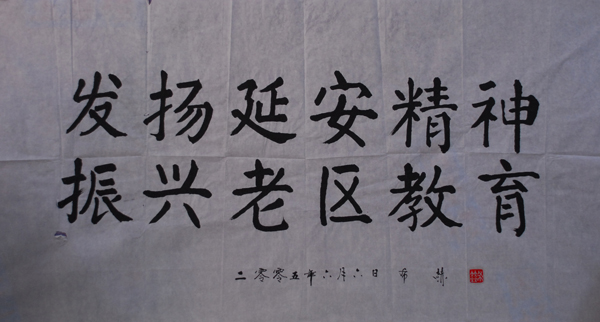 发扬延安精神
振兴老区教育
二零零五年六月六日 希